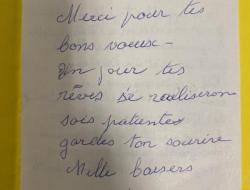 Merci pour tes
bons voeux -
Un jour tes
rêves se réaliseron
sois patiente
gardes ton sourire
Mille baisers